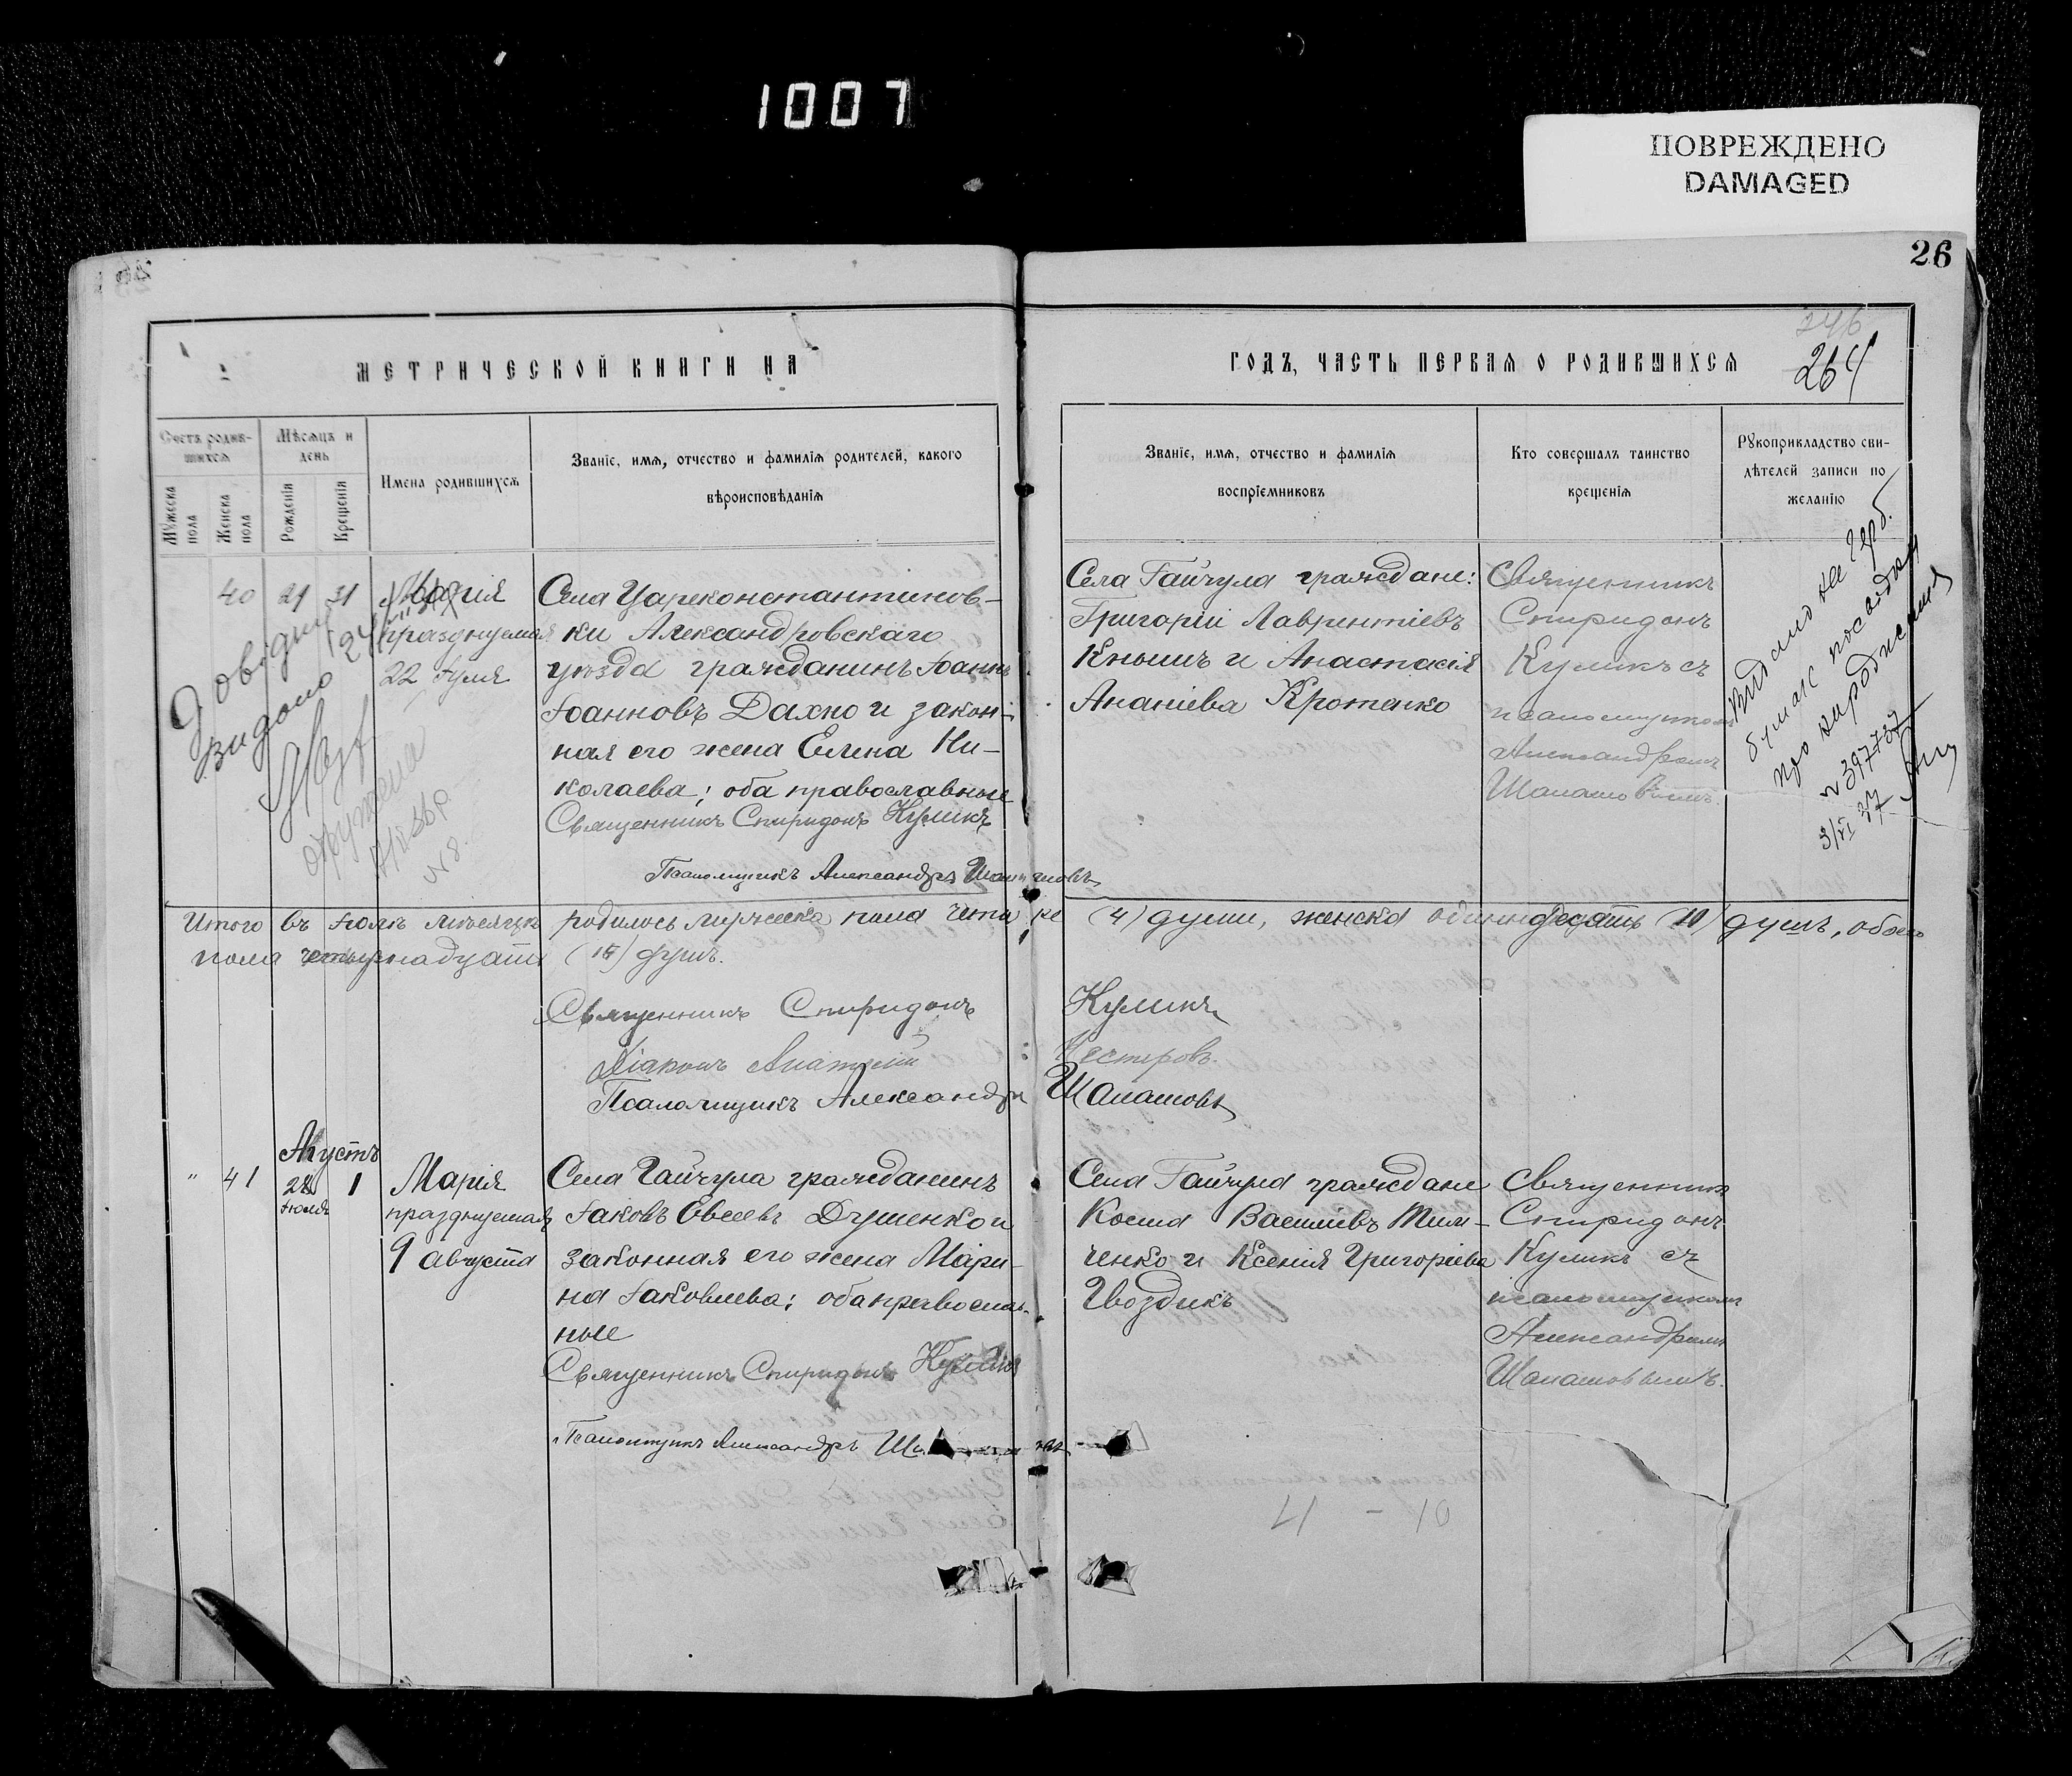 1007
ПОВРЕЖДЕНО
DAMAGED
26
246
264
МЕТРИЧЕСКОЙ КНИГИ НА
ГОДЪ, ЧАСТЬ ПЕРВАЯ О РОДИВШИХСЯ
Счетъ родив-
шихся
Мѣсяцъ и
день
Мужеска
пола
Женска
пола
Рожденія
Крещенія
Имена родившихся
Званіе, имя, отчество и фамилія родителей, какого
вѣроисповѣданія
Званіе, имя, отчество и фамилія
воспріемниковъ
Кто совершалъ таинство
крещенія
Рукоприкладство сви-
дѣтелей записи по
желанію
40 21 31
Марія
празднуемая
22 Іюля
Села Цареконстантинов-
ки Александровскаго
уѣзда гражданинъ Іоаннъ
Іоанновъ Дахно и закон-
ная его жена Елена Ни-
колаева; оба православные
Священникъ Спиридонъ Куликъ
Псаломщикъ Александръ
Села Гайчула граждане:
Григорій Лаврентіевъ
Кнышъ и Анастасія
Ананіева Кротенко
Священникъ
Спиридонъ
Куликъ съ
псаломщикомъ
Александромъ
Довідку
видано
Видано на Герб.
бумазі
про народження
№ 397737
3/VI 37
Итого въ Іюлѣ мѣсяцѣ родилось мужеска пола четыре (4) души, женска (10) душъ, обоего
пола четырнадцать (14) душъ.
Священникъ Спиридонъ Куликъ
Діаконъ Анатолій Нестеровъ.
Псаломщикъ Александръ Шалашовъ
Августъ
" 41 28 1
Іюля
Марія
празднуемая
9 августа
Села Гайчула гражданинъ
Іаковъ Евсеевъ Душенко и
законная его жена Мари-
на Іаковлева; оба православ-
ные
Священникъ Спиридонъ Куликъ
Псаломщикъ Александръ
Села Гайчула граждане
Косма Василіевъ Тим-
ченко и Ксенія Григоріева
Гвоздикъ
Священникъ
Спиридонъ
Куликъ съ
псаломщикомъ
Александромъ
Шалашовымъ.
4 - 10